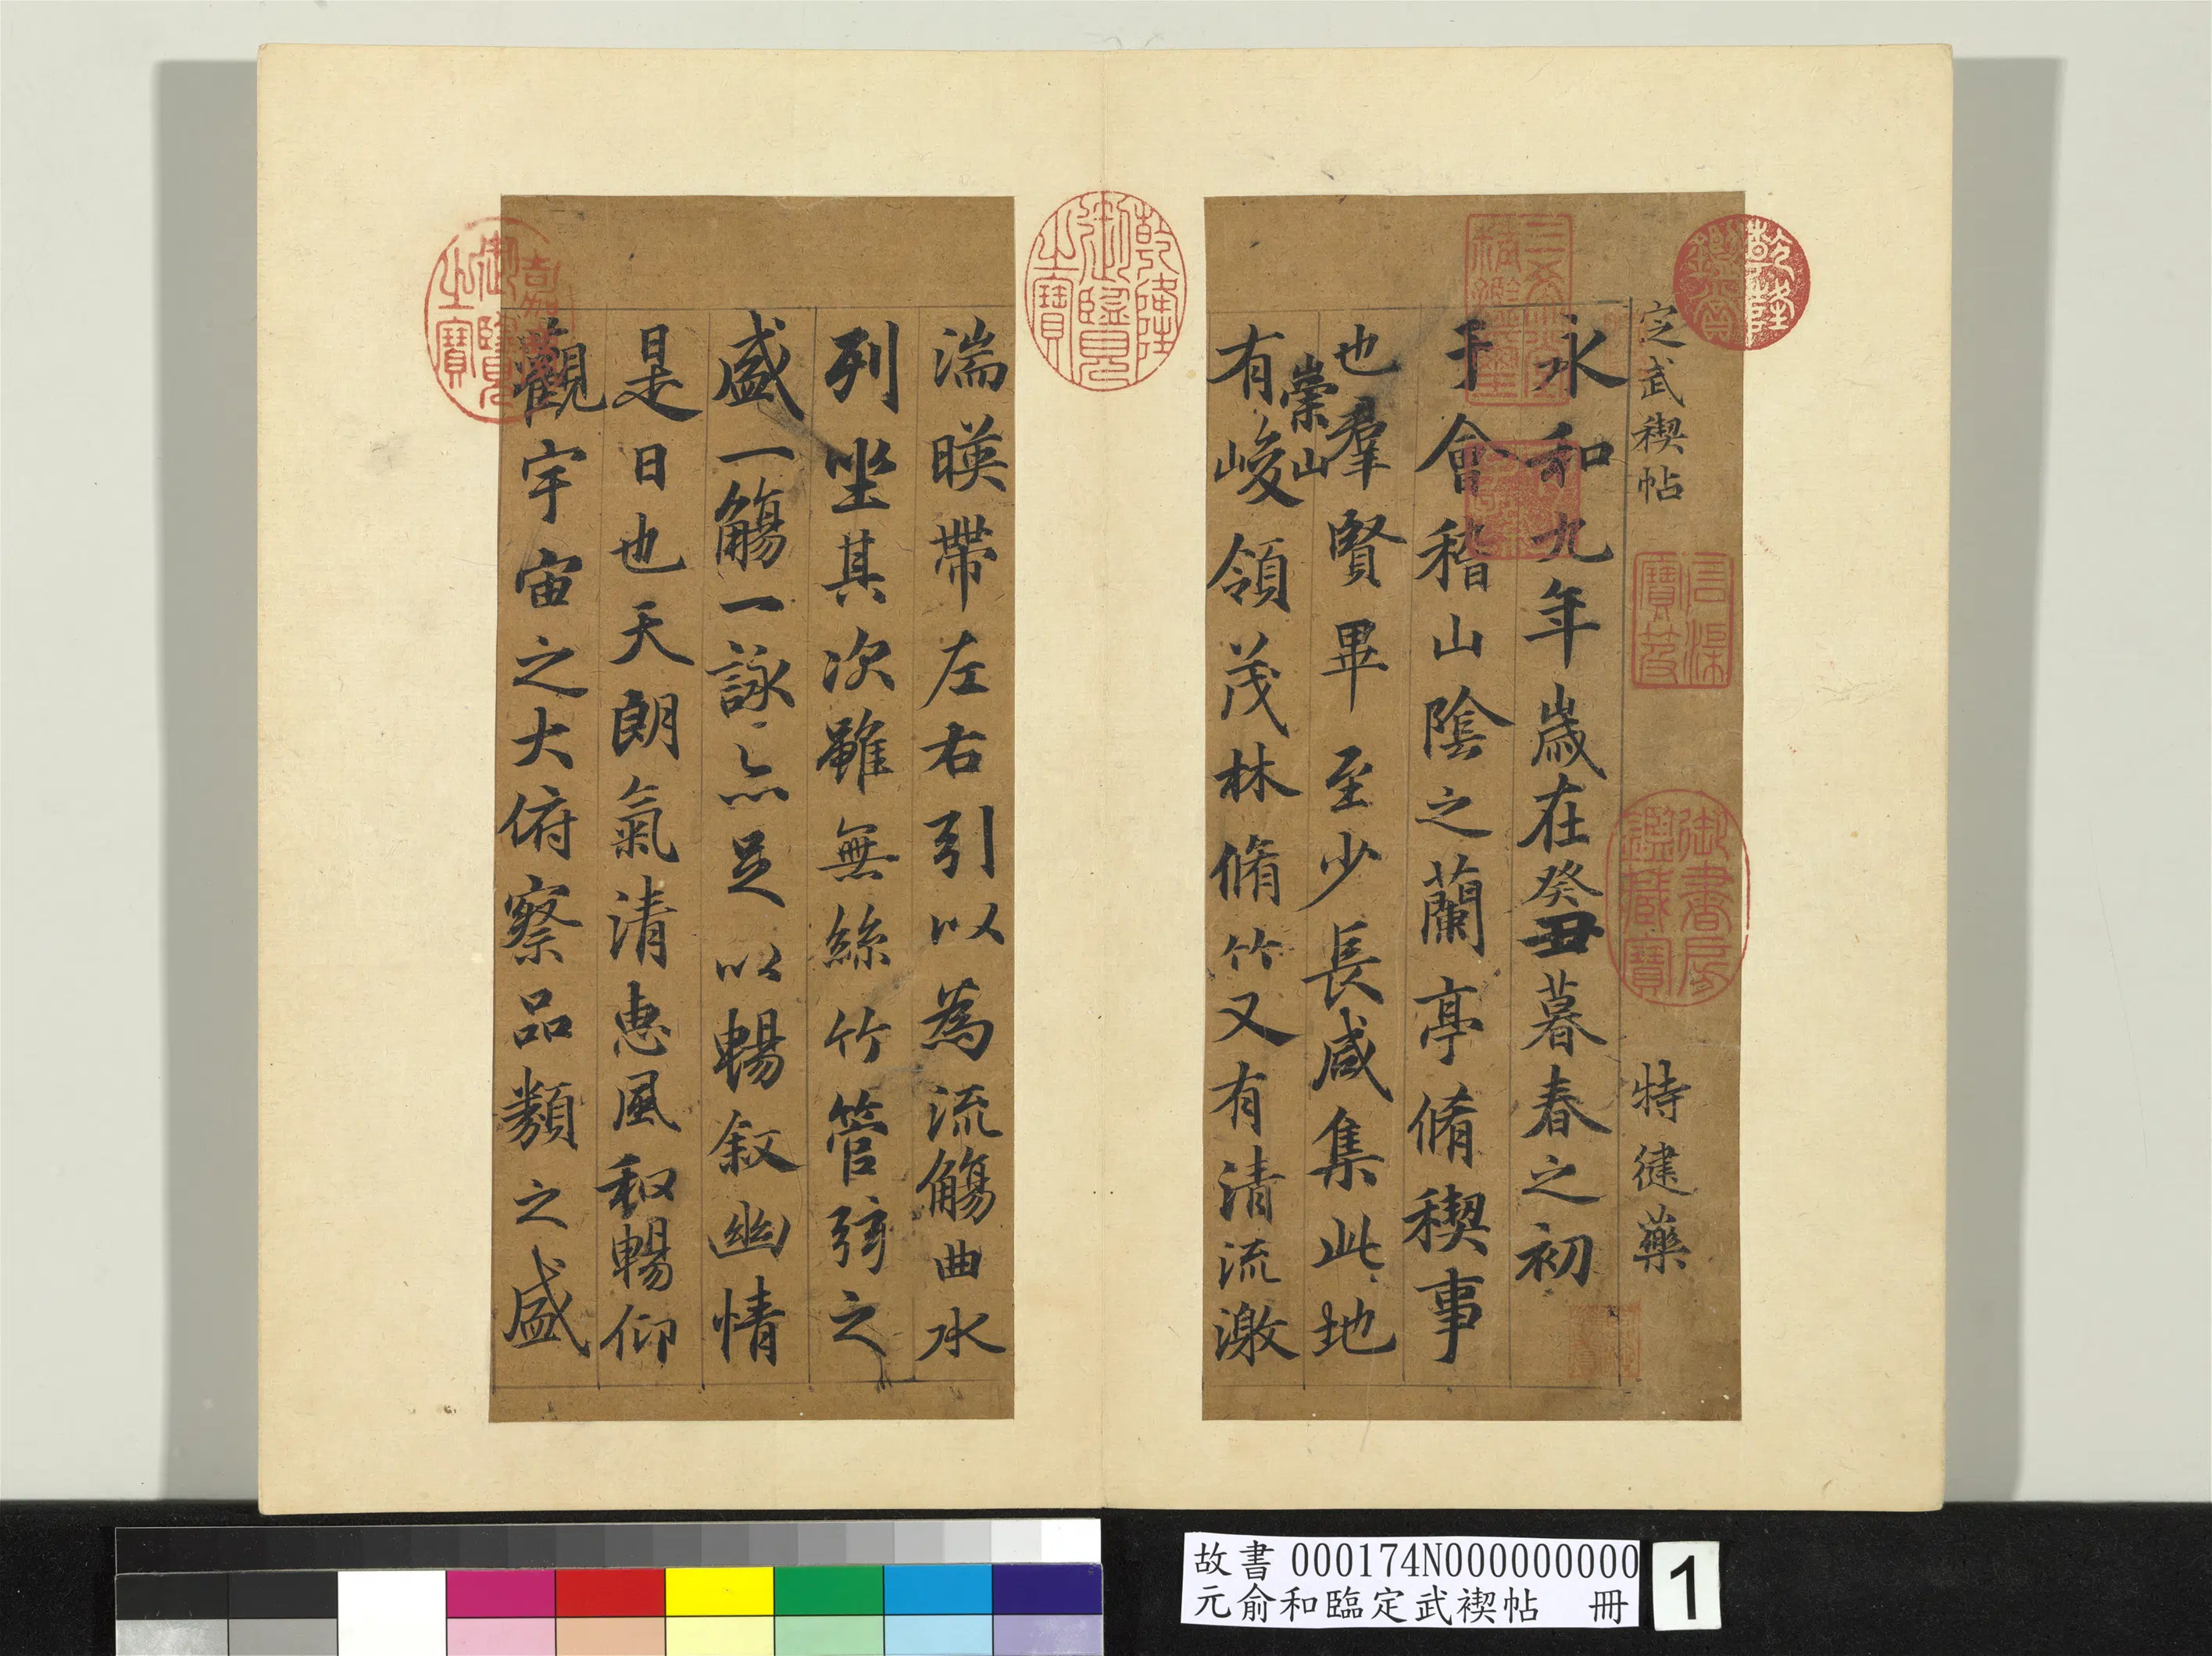 定武禊帖
特健藥
永和九年歲在癸丑暮春之初
于會稽山陰之蘭亭脩禊事
也羣賢畢至少長咸集此地
崇山
有峻領茂林脩竹又有清流激
湍暎帶左右引以為流觴曲水
列坐其次雖無絲竹管弦之
盛一觴一詠亦足以暢叙幽情
是日也天朗氣清惠風和暢仰
觀宇宙之大俯察品類之盛
乾隆鑑賞
三希堂精鑑璽
宜子孫
石渠寶笈
御書房鑑藏寶
乾隆御覽之寶
嘉慶御覽之寶
故書 000174N000000000
元俞和臨定武禊帖 冊
1